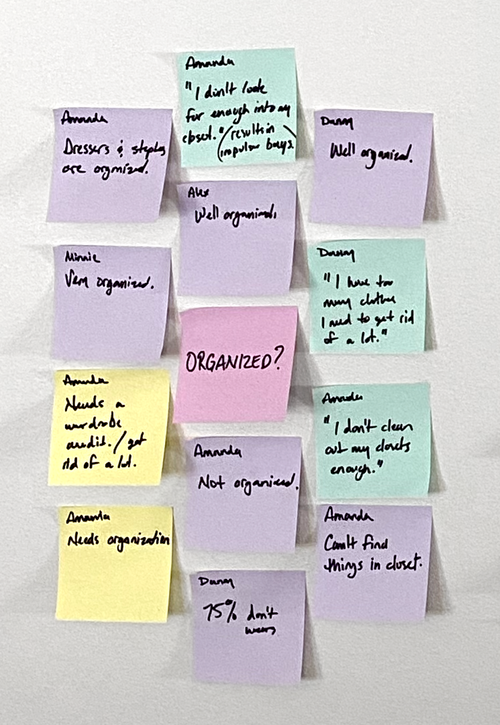 Amanda
"I don't look
far enough into my
closet." (results in
impulse buys.)
Amanda
Dressers & staples
are organized.
Danny
Well organized.
Alex
Well organized.
Minnie
Very organized.
Danny
"I have too
many clothes
I need to get rid
of a lot."
ORGANIZED?
Amanda
Needs a
wardrobe
audit. / get
rid of a lot.
Amanda
"I don't clean
out my closets
enough."
Amanda
Not organized.
Amanda
Needs organization
Amanda
Can't find
things in closet.
Danny
75% don't
wear